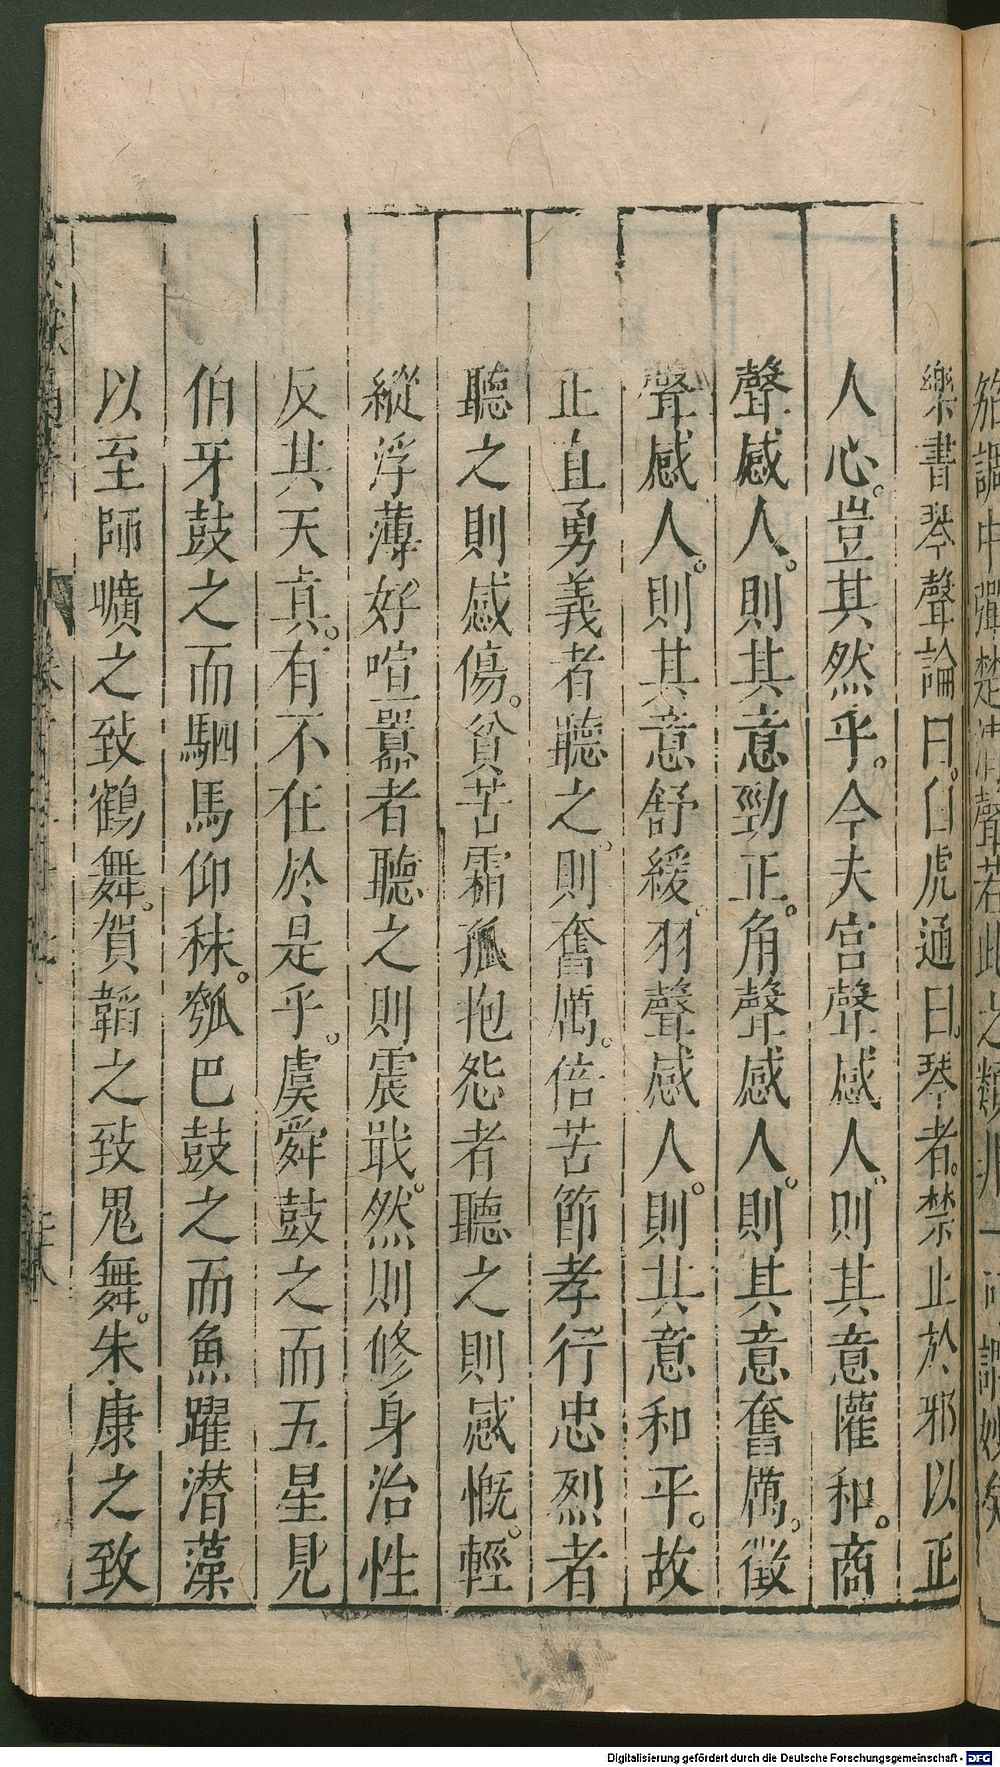 樂書琴聲論曰。白虎通曰。琴者。禁止於邪以正
人心。豈其然乎。今夫宮聲感人。則其意懽和。商
聲感人。則其意勁正。角聲感人。則其意奮厲。徵
聲感人。則其意舒緩。羽聲感人。則其意和平。故
正直勇義者聽之。則奮厲。倍苦節孝行忠烈者
聽之則感傷。貧苦霜孤抱怨者聽之則感慨。輕
縱浮薄好喧囂者聽之則震戢。然則修身治性
反其天真。有不在於是乎。虞舜鼓之而五星見
伯牙鼓之而駟馬仰秣。瓠巴鼓之而魚躍潛藻
以至師曠之致鶴舞。賀韜之致鬼舞。朱康之致
Digitalisierung gefördert durch die Deutsche Forschungsgemeinschaft - DFG